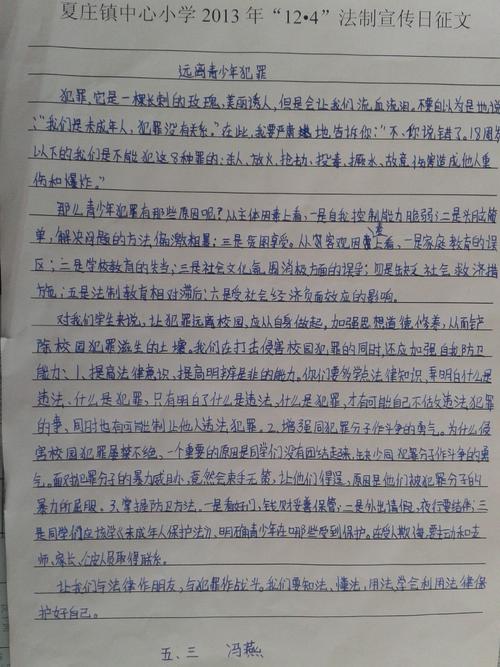 夏庄镇中心小学2013年“12•4”法制宣传日征文
远离青少年犯罪
犯罪,它是一棵长刺的玫瑰,美丽诱人,但是会让我们流血流泪。不要自以为是地说
:“我们是未成年人,犯罪没有关系。”在此,我要严肃地告诉你:“不,你说错了。18周岁
以下的我们是不能犯这8种罪的:杀人、放火、抢劫、投毒、故意伤害造成他人重
伤和爆炸。”
那么青少年犯罪有那些原因呢?从主体因素上看,一是自我控制能力脆弱;二是头脑简
单,解决问题的方法偏激粗暴;三是贪图享受。从客观因素上看,一是家庭教育的误
区;二是学校教育的失当;三是社会文化氛围消极方面的误导;四是缺乏社会救济措
施;五是法制教育相对滞后;六是受社会经济负面效应的影响。
对我们学生来说,让犯罪远离校园,应从自身做起,加强思想道德修养,从而铲
除校园犯罪滋生的土壤。我们在打击侵害校园犯罪的同时,还应加强自我防卫
能力:1、提高法律意识,提高明辨是非的能力。你们要多学点法律知识,弄明白什么是
违法、什么是犯罪,只有明白了什么是违法、什么是犯罪,才有可能自己不去做违法犯罪
的事,同时也有可能制止他人违法犯罪。2、增强同犯罪分子作斗争的勇气。为什么侵
害校园犯罪屡禁不绝,一个重要的原因是同学们没有团结起来,缺少同犯罪分子作斗争的勇
气。面对犯罪分子的暴力威胁,竟然会束手无策,让他们得逞,原因是他们被犯罪分子的
暴力所屈服。3、掌握防卫方法。一是看好门,钱财妥善保管;二是外出请假,夜行要结伴;三
是同学们应该学《未成年人保护法》,明确青少年在哪些受到保护。在受人欺侮,要主动和老
师、家长、公安人员取得联系。
让我们与法律作朋友,与犯罪作战斗。我们要知法、懂法,用法,学会利用法律保
护好自己。
五、三 冯燕